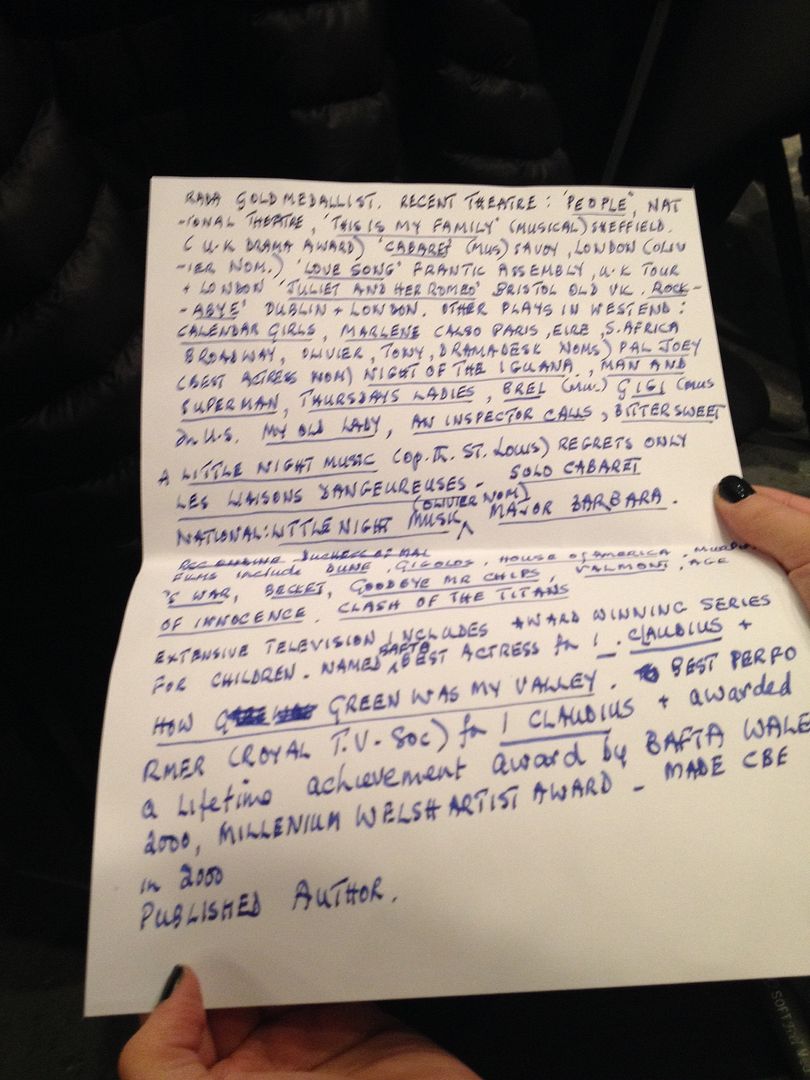 RADA GOLD MEDALLIST. RECENT THEATRE: 'PEOPLE', NAT
-IONAL THEATRE, 'THIS IS MY FAMILY' (MUSICAL) SHEFFIELD.
(U.K DRAMA AWARD) 'CABARET' (MUS) SAVOY, LONDON (OLIV
-IER NOM.) 'LOVE SONG' FRANTIC ASSEMBLY, U.K TOUR
+ LONDON 'JULIET AND HER ROMEO' BRISTOL OLD VIC. ROCK-
-ABYE' DUBLIN + LONDON. OTHER PLAYS IN WEST END:
CALENDAR GIRLS, MARLENE (ALSO PARIS, EIRE, S. AFRICA
BROADWAY, OLIVIER, TONY, DRAMADESK NOMS) PAL JOEY
(BEST ACTRESS NOM) NIGHT OF THE IGUANA, MAN AND
SUPERMAN, THURSDAYS LADIES, BREL (MUS.) GIGI (MUS
In U.S. MY OLD LADY, AN INSPECTOR CALLS, BITTERSWEET
A LITTLE NIGHT MUSIC (Op. Th. ST. LOUIS) REGRETS ONLY
LES LIAISONS DANGEUREUSES - SOLO CABARET
NATIONAL: LITTLE NIGHT MUSIK (OLIVIER NOM) MAJOR BARBARA.
DUCHESS OF MAL
FILMS include DUNE, GIGOLOS, HOUSE OF AMERICA, MURPH
'S WAR, BECKET, GOODBYE MR CHIPS, VALMONT, AGE
OF INNOCENCE. CLASH OF THE TITANS
EXTENSIVE TELEVISION INCLUDES AWARD WINNING SERIES
FOR CHILDREN. NAMED BAFTA BEST ACTRESS for I. CLAUDIUS +
HOW GREEN WAS MY VALLEY. BEST PERFO
RMER (ROYAL T.V. SOC) for I CLAUDIUS + awarded
a Lifetime achievement award by BAFTA WALE
2000, MILLENIUM WELSH ARTIST AWARD - MADE CBE
in 2000
PUBLISHED AUTHOR.